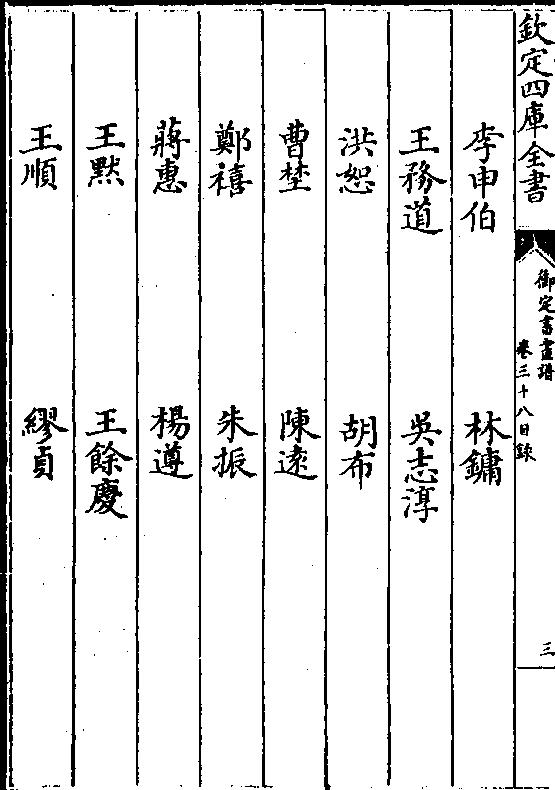 欽定四庫全書
御定書畫譜
卷三十八目錄
三
李申伯 林鏞
王務道 吳志淳
洪恕 胡布
曹埜 陳遠
鄭禧 朱振
蔣惠 楊遵
王默 王餘慶
王順 繆貞